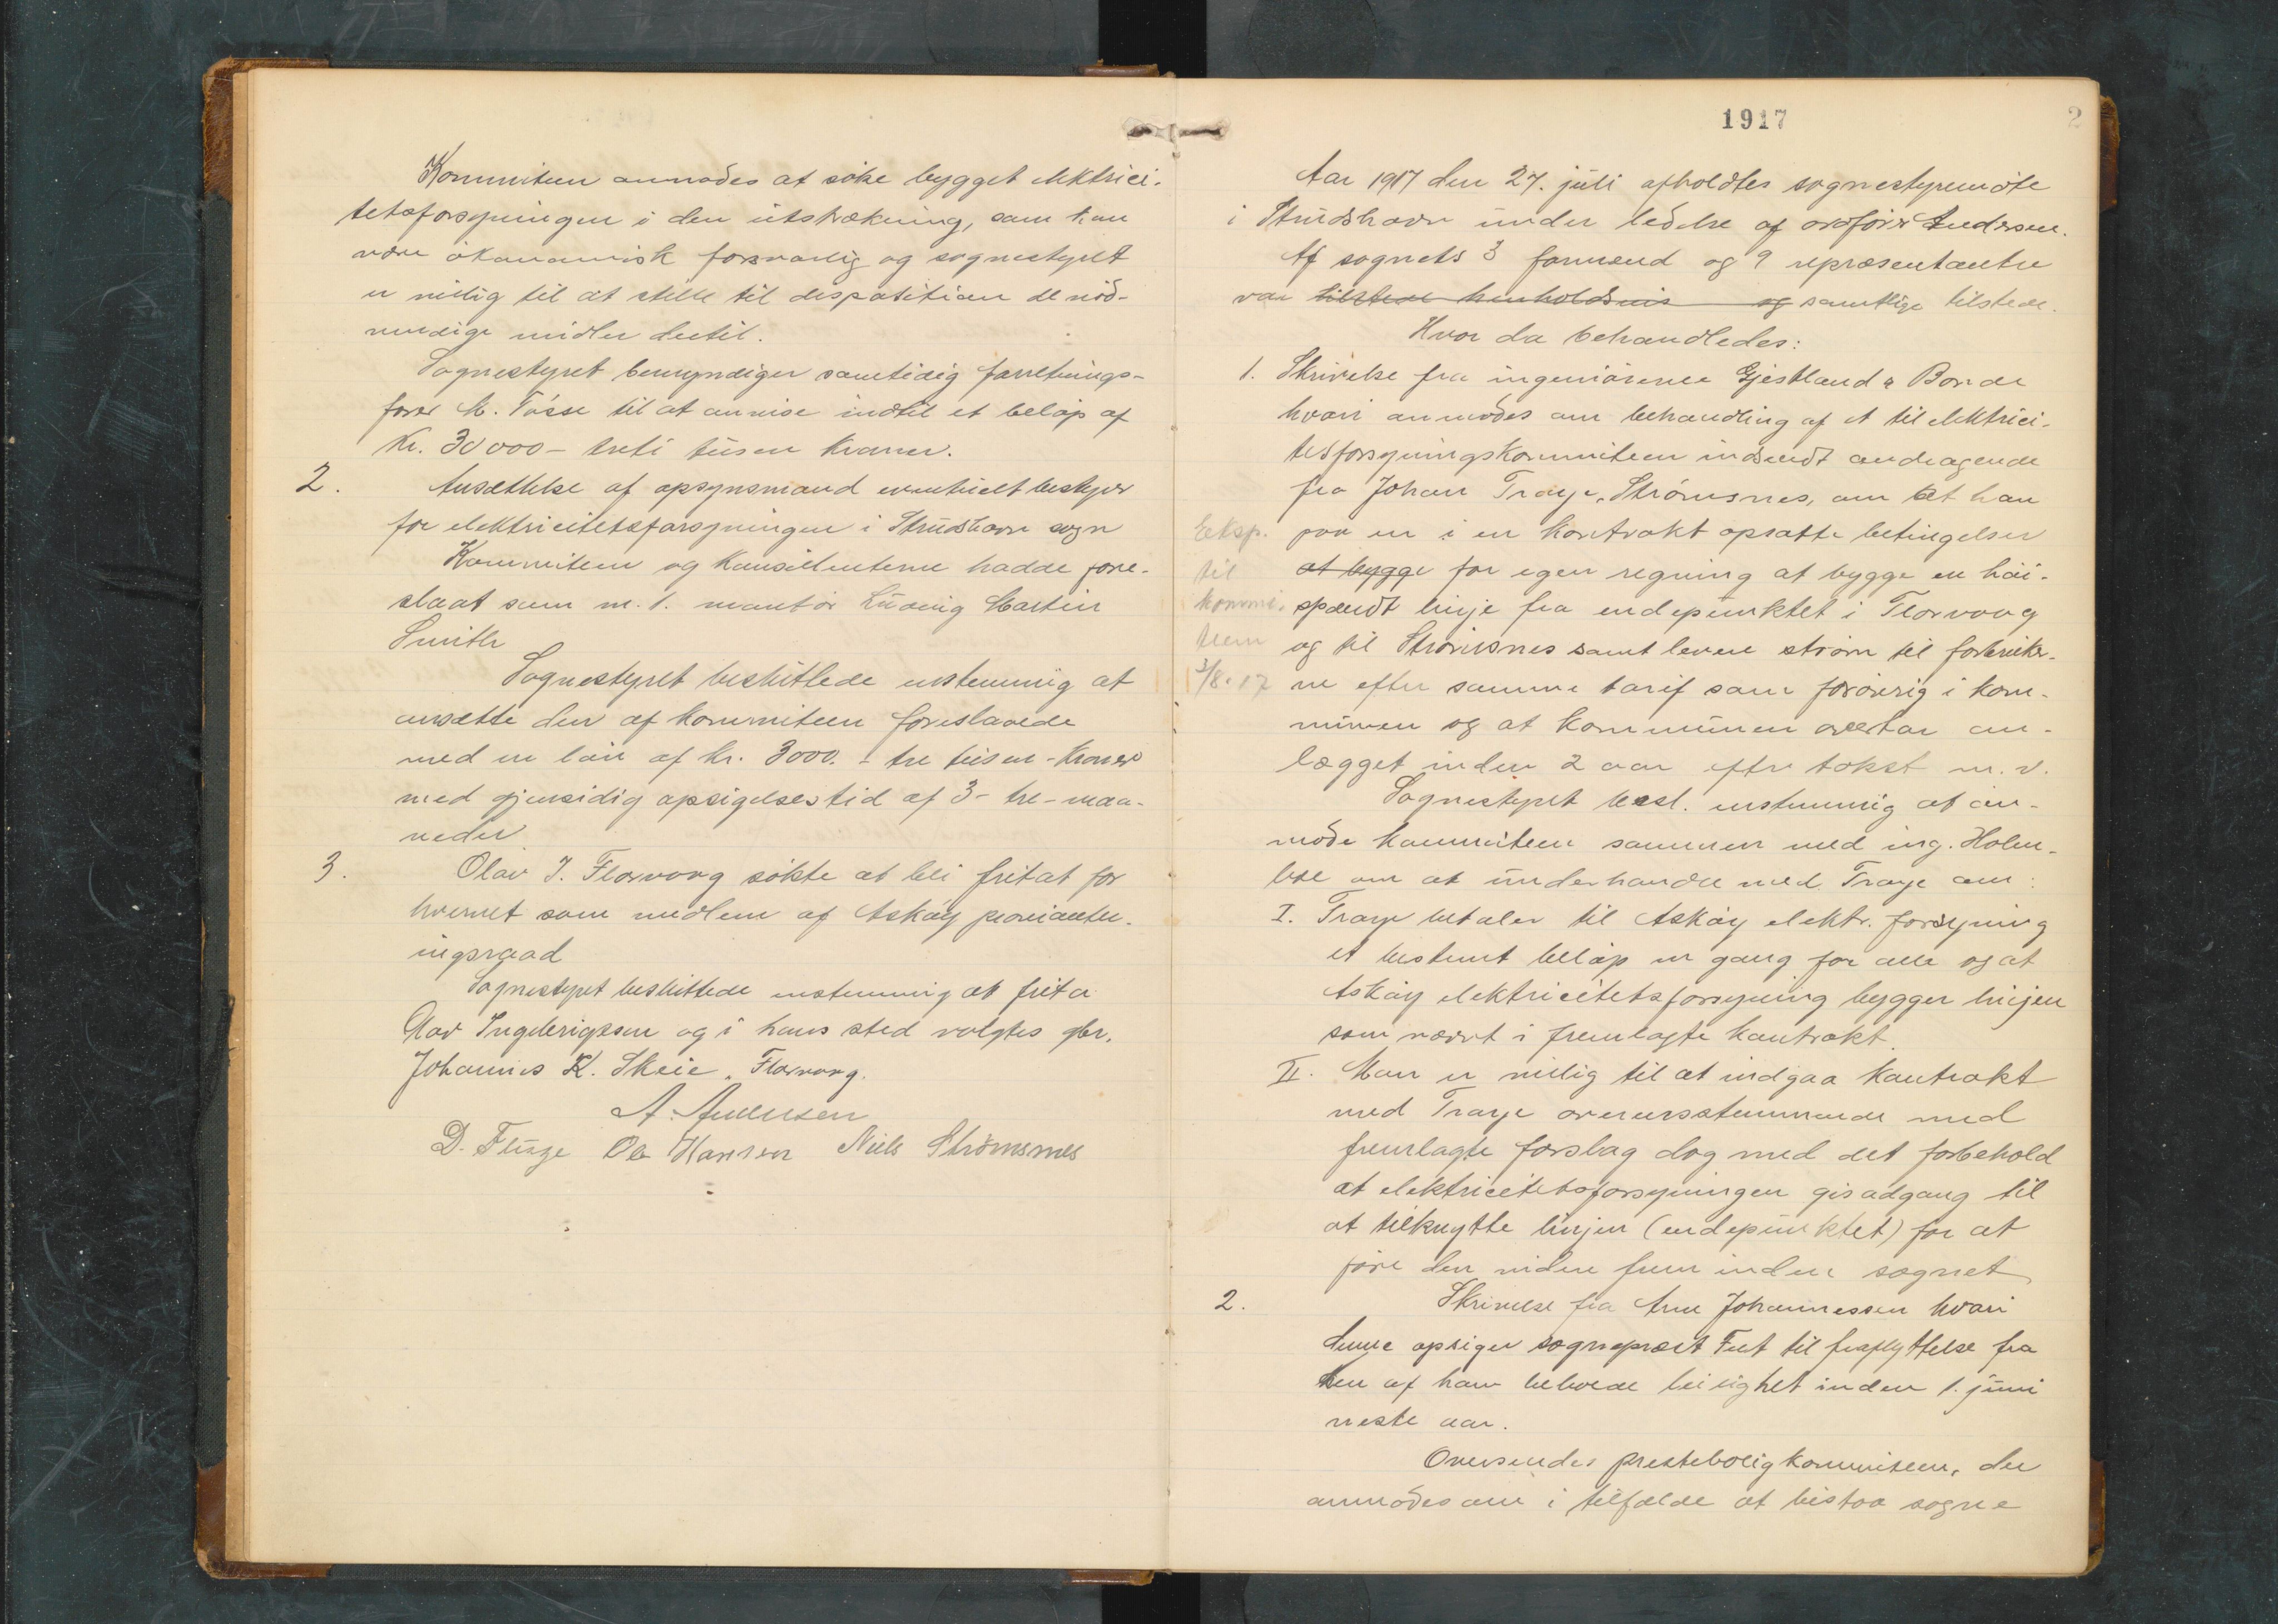 Kommiteen anmodes at søke bygget elektrici-
tetsforsyningen i den utstrækning, som kan
være økonomisk forsvarlig og sognestyret
er villig til at stille til disposition de nød-
vendige midler dertil.
Sognestyret bemyndiger samtidig forretnings-
fører M. Tosse til at anvise indtil et beløp af
Kr. 30000 - treti tusen kroner.
2. Ansættelse af opsynsmand eventuelt bestyrer
for elektricitetsforsyningen i Strudshavn sogn
Kommiteen og konsulenterne hadde fore-
slaat som nr. 1. montør Ludvig Martin
Smith
Sognestyret besluttede enstemmig at
ansætte den af kommiteen foreslaaede
med en løn af kr. 3000. - tre tusen - kroner
med gjensidig opsigelsestid af 3 - tre - maa-
neder.
3. Olav I. Florvaag søkte at bli fritat for
hvervet som medlem af Askøy provianter-
ingsraad
Sognestyret besluttede enstemmig at frita
Olav Ingebrigtsen og i hans sted valgtes gbr.
Johannes K. Skeie, Florvaag.
A. Andersen
D. Fluge Ole Hansen Niels Strømsnes
1917
2
Aar 1917 den 27. juli afholdtes sognestyremøte
i Strudshavn under ledelse af ordfører Andersen.
Af sognets 3 formænd og 9 repræsentanter
var tilstede henholdsvis og samtlige tilstede.
Hvor da behandledes:
1. Skrivelse fra ingeniørerne Gjestland & Bonde
hvori anmodes om behandling af et til elektrici-
tetsforsyningskommiteen indsendt andragende
fra Johan Traye, Strømsnes, om at han
paa en i en kontrakt opsatte betingelser
at bygge for egen regning at bygge en høi-
spændt linje fra endepunktet i Florvaag
og til Strømsnes samt levere strøm til forbruker-
ne efter samme tarif som forøvrig i kom-
munen og at kommunen overtar an-
lægget inden 2 aar efter takst m.v.
Eksp.
til
kommi-
teen
3/8-17
Sognestyret besl. enstemmig at an-
mode kommiteen sammen med ing. Holm-
boe om at underhandle med Traye om:
I. Traye betaler til Askøy elektr. forsyning
et bestemt beløp en gang for alle og at
Askøy elektricitetsforsyning bygger linjen
som nævnt i fremlagte kontrakt.
II. Man er villig til at indgaa kontrakt
med Traye overensstemmende med
fremlagte forslag dog med det forbehold
at elektricitetsforsyningen gis adgang til
at tilknytte linjen (endepunktet) for at
føre den videre frem inden sognet
2. Skrivelse fra Arne Johannessen hvori
denne opsiger sogneprest Feet til fraflyttelse fra
den af ham beboede leilighet inden 1. juni
neste aar.
Oversendes presteboligkommiteen, der
anmodes om i tilfælde at bistaa sogne